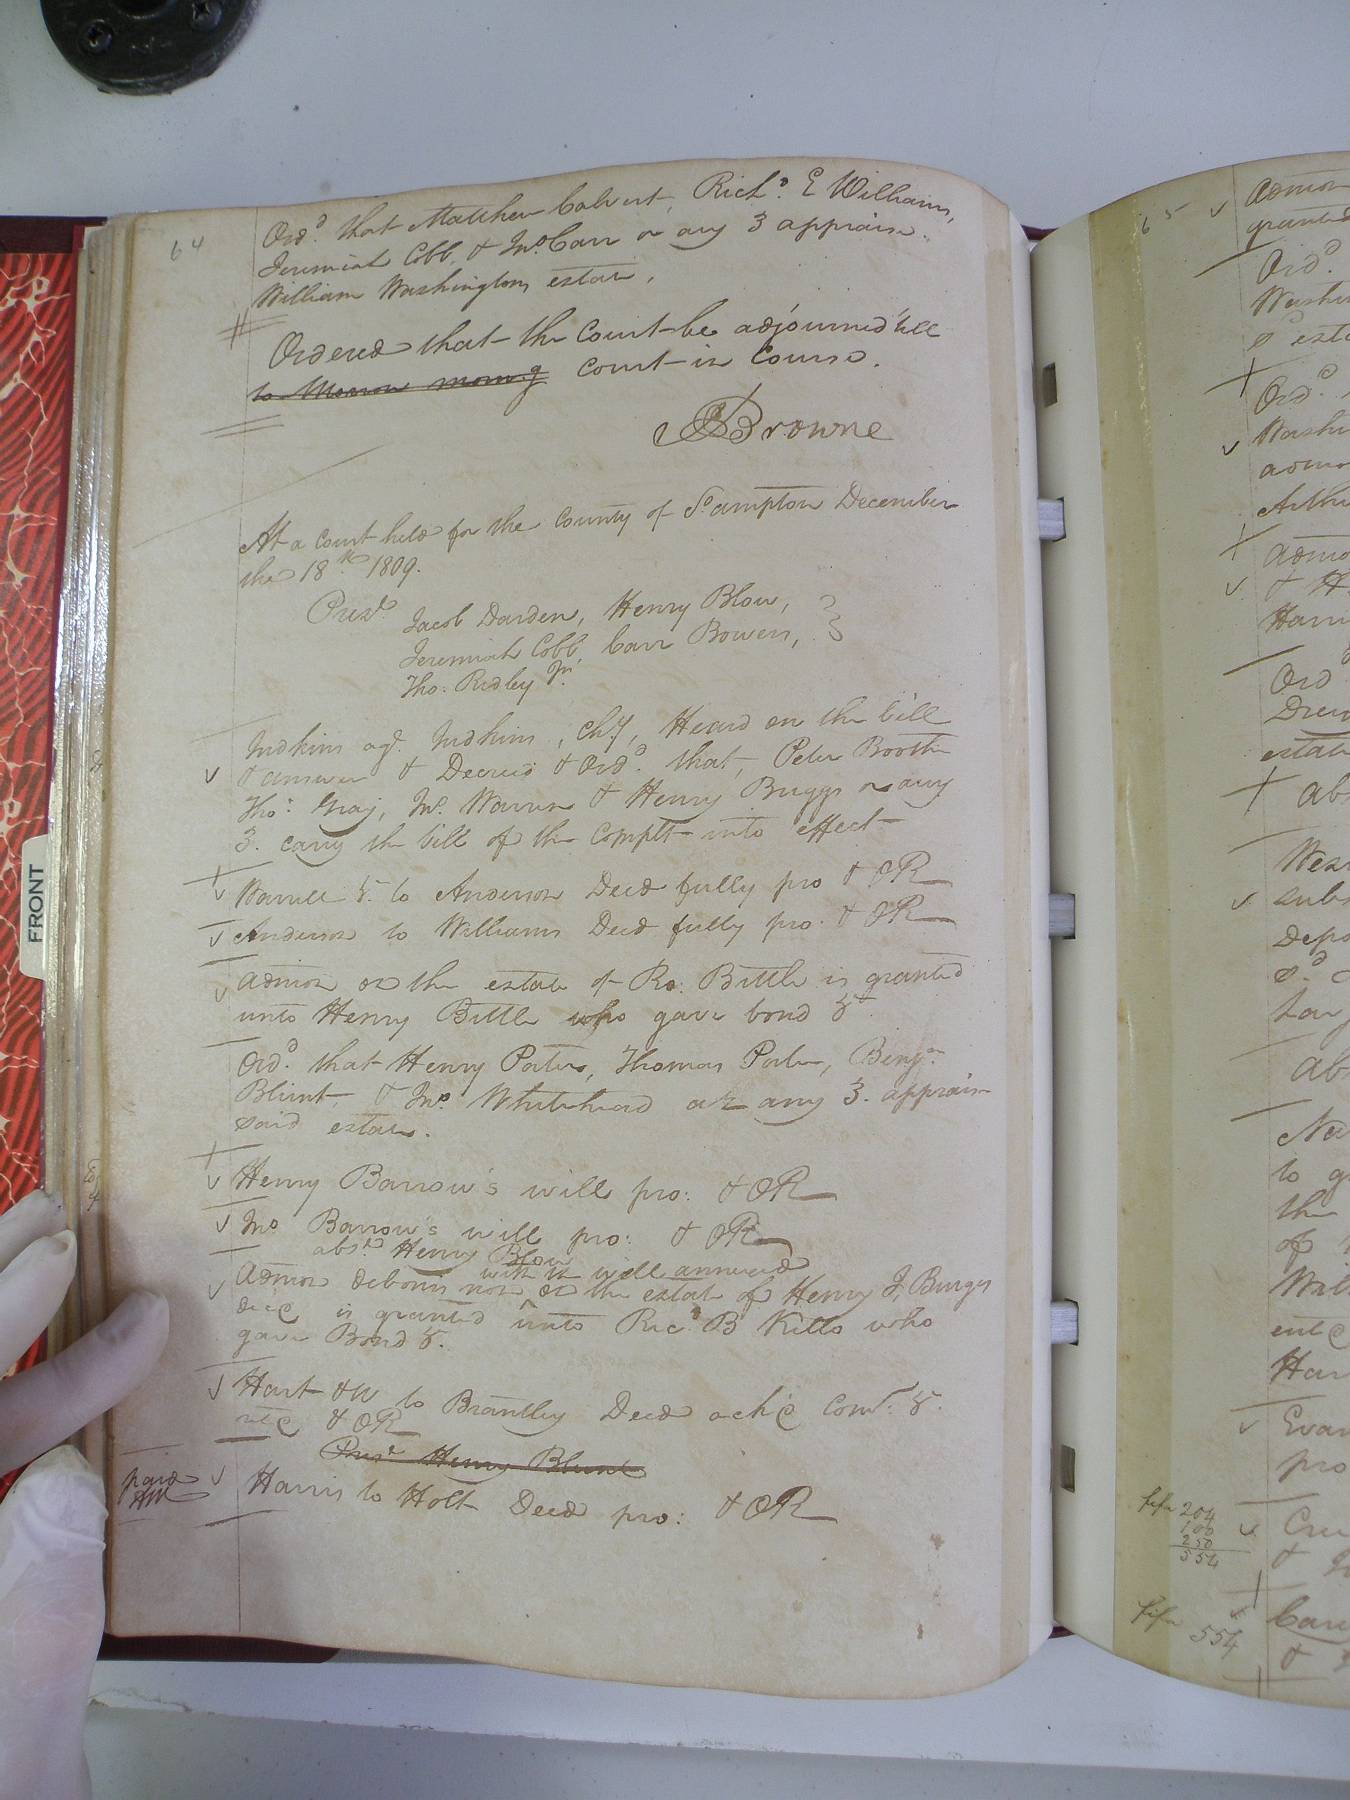 64
Ord.d that Matthew Calvert, Rich.d E Williams,
Jeremiah Cobb, & Jno. Carr or any 3 appraise
William Washingtons estate.
Ordered that the Court be adjourned till
to Morrow morng Court in Course.
Browne
At a Court held for the County of So.ampton December
the 18th 1809.
Pres.t
Jacob Darden, Henry Blow,
Jeremiah Cobb, Carr Bowers,
Tho. Ridley Jr.
Judkins agt. Judkins, Chy, Heard on the bill
& answer & Decreed & Ord.d that, Peter Booth
Tho.s Gray, Jno. Warren & Henry Briggs or any
3. carry the bill of the Complt into effect
Warrell &. to Anderson Deed fully pro & OR
Anderson to Williams Deed fully pro. & OR
Admon on the estate of Ro. Bittle is granted
unto Henry Bittle who gave bond &c
Ord.d that Henry Porter, Thomas Porter, Benj.n
Blunt, & Jno. Whitehead or any 3. appraise
said estate.
Henry Barrow's will pro: & OR
Jno Barrow's will pro: & OR
abs.t Henry Blow
with the will annexed
Admon debonis non on the estate of Henry J. Burges
dec is granted unto Ric.d B Kello who
gave Bond &.
Hart & W to Brantley Deed ackd Com. &.
retd & OR
Pres.t Henry Blunt
paid
Harris to Holt Deed pro: & OR
FRONT
65
Admon
granted
Ord.d
Ord.d
Admo
Ord
estate
Abs
to
the
of
Evan
pro
fifa 204
100
250
554
fifa 554